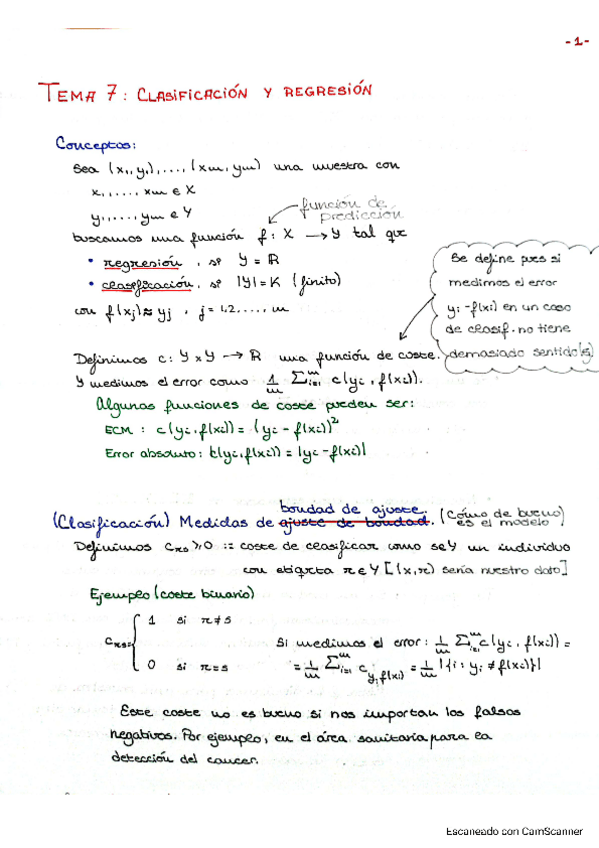 -1-
TEMA 7: CLASIFICACIÓN Y REGRESIÓN
Conceptos:
Sea (x₁,y₁),...,(xm,ym) una muestra con
x₁,...,xm ∈ X
y₁,...,ym ∈ Y
función de
predicción
buscamos una función f: X → Y tal que
• regresión, si Y = ℝ
• clasificación, si |Y|=K (finito)
con f(xj)≈yj, j=1,2,...,m
Se define pues si
medimos el error
yi-f(xi) en un caso
de clasif. no tiene
demasiado sentido
Definimos c: Y x Y → ℝ una función de coste.
Y medimos el error como 1/m Σᵢ₌₁ᵐ c(yi, f(xi)).
Algunas funciones de coste pueden ser:
ECM: c(yi,f(xi)) = (yi - f(xi))²
Error absoluto: c(yi,f(xi)) = |yi-f(xi)|
bondad de ajuste.
(Clasificación) Medidas de ajuste de bondad. (Cómo de bueno
es el modelo)
Definimos crs ≥ 0 := coste de clasificar como s∈Y un individuo
con etiqueta r∈Y [(x,r) sería nuestro dato]
Ejemplo (coste binario)
crs = { 1 si r≠s
0 si r=s
Si medimos el error: 1/m Σᵢ₌₁ᵐ c(yi, f(xi)) =
= 1/m Σᵢ₌₁ᵐ c yi,f(xi) = 1/m |{i: yi ≠ f(xi)}|
Este coste no es bueno si nos importan los falsos
negativos. Por ejemplo, en el área sanitaria para la
detección del cancer.
Escaneado con CamScanner